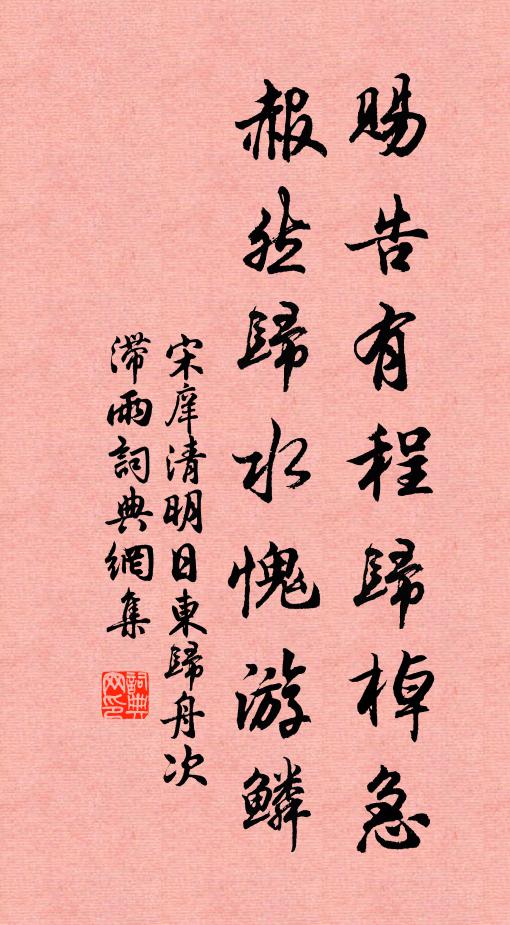 賜告有程歸棹急
赧然歸水愧游鱗
宋庠清明日東歸舟次
滯雨詞典網集
詞典網印